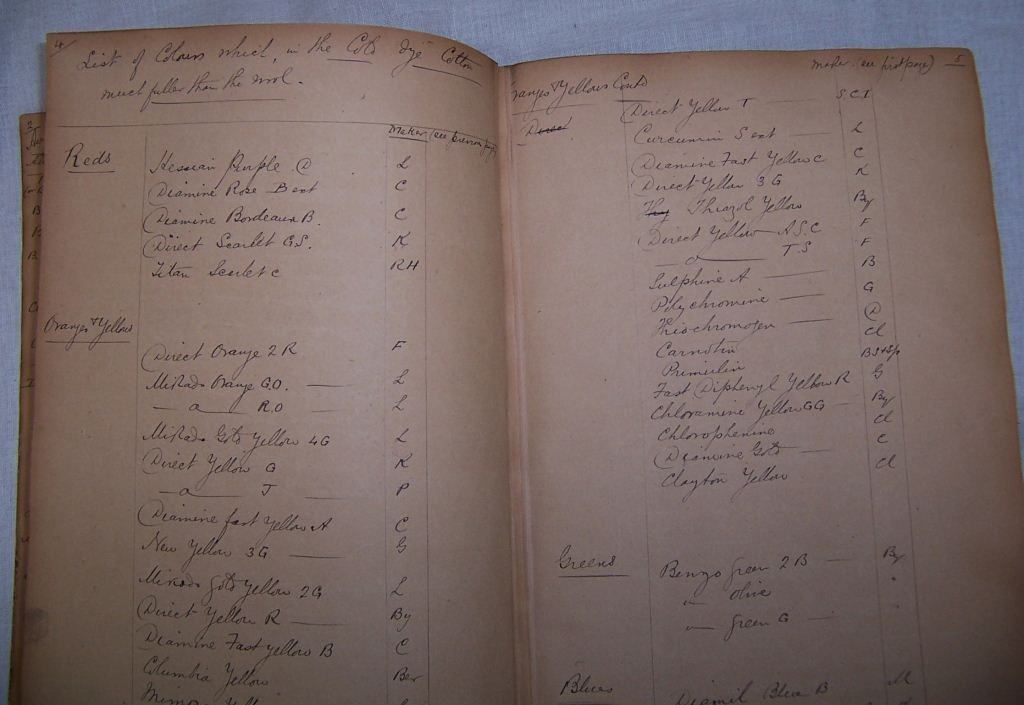 4
List of Colours which, in the Cold dye Cotton
much fuller than the wool.
Maker (see previous page)
Reds
Hessian Purple D L
Diamine Rose B ext C
Diamine Bordeaux B. C
Direct Scarlet G.S. K
Titan Scarlet C RH
Oranges & Yellows
Direct Orange 2 R F
Mikado Orange G.O. — L
— a — R.O L
Mikado Gold Yellow 4G L
Direct Yellow G K
— a — J — P
Diamine fast Yellow A C
New Yellow 3G — G
Mikado gold Yellow 2G L
Direct Yellow R — By
Diamine Fast yellow B C
Columbia Yellow Ber
Maker (see first page) 5
Oranges & Yellows Contd
Direct
Direct Yellow T — S.C.I
Curcumin S ext — L
Diamine Fast Yellow C C
Direct Yellow 3 G K
Thiazol Yellow By
Direct Yellow A.S.C F
— a — T.S F
Sulphine A — B
Polychromine — G
Thiochromogen — D
Carnotin Cl
Primulin BS&Sp
Fast Diphenyl Yellow R G
Chloramine Yellow GG By
Chlorophenine Cl
Diamine Gold — C
Clayton Yellow Cl
Greens
Benzo Green 2 B — By
" — Olive "
" — green G — "
Blues
Diamil Blue B M